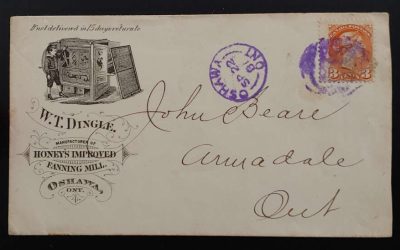 If not delivered in 15 days return to
W. T. DINGLE,
MANUFACTURER OF
HONEY'S IMPROVED
FANNING MILL,
OSHAWA,
ONT.
OSHAWA
ONT
3 3
John Beare
Armadale
Ont